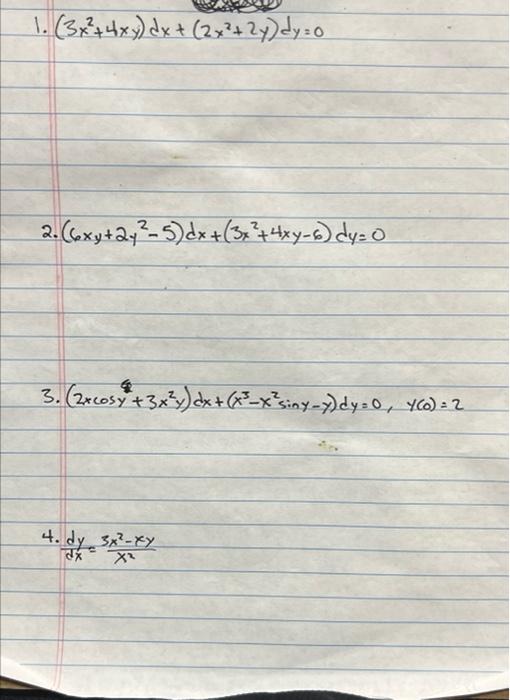 1. (3x²+4xy)dx+(2x²+2y)dy=0
2. (6xy+2y²-5)dx+(3x²+4xy-6)dy=0
3. (2xcosy+3x²y)dx+(x³-x²siny-y)dy=0, y(0)=2
4. dy/dx = 3x²-xy/x²